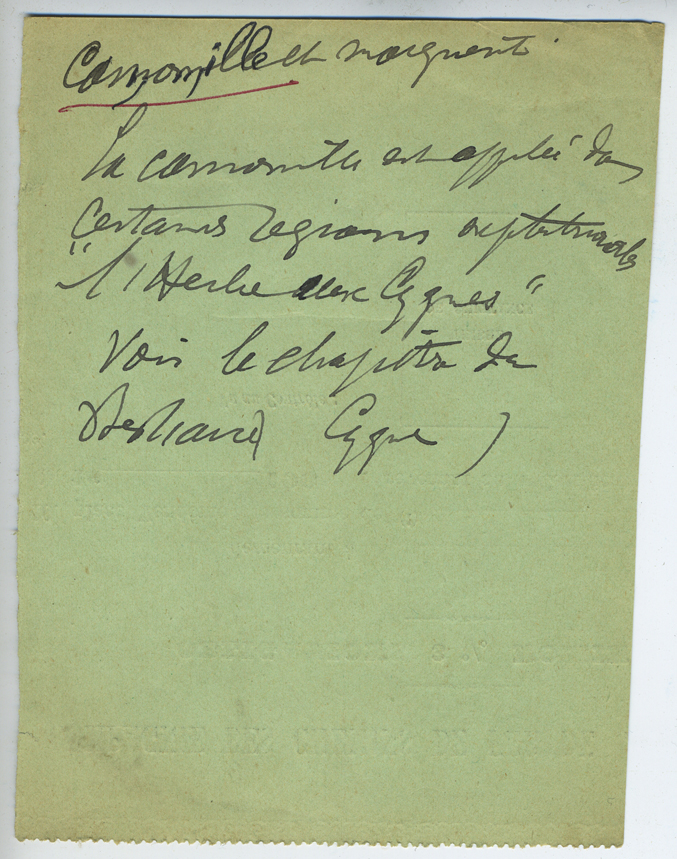 Camomille et marguerite.
La camomille est appelée dans
certaines régions septentrionales
"l'Herbe aux Cygnes"
Voir le chapitre du
Bestiaire Cygne )